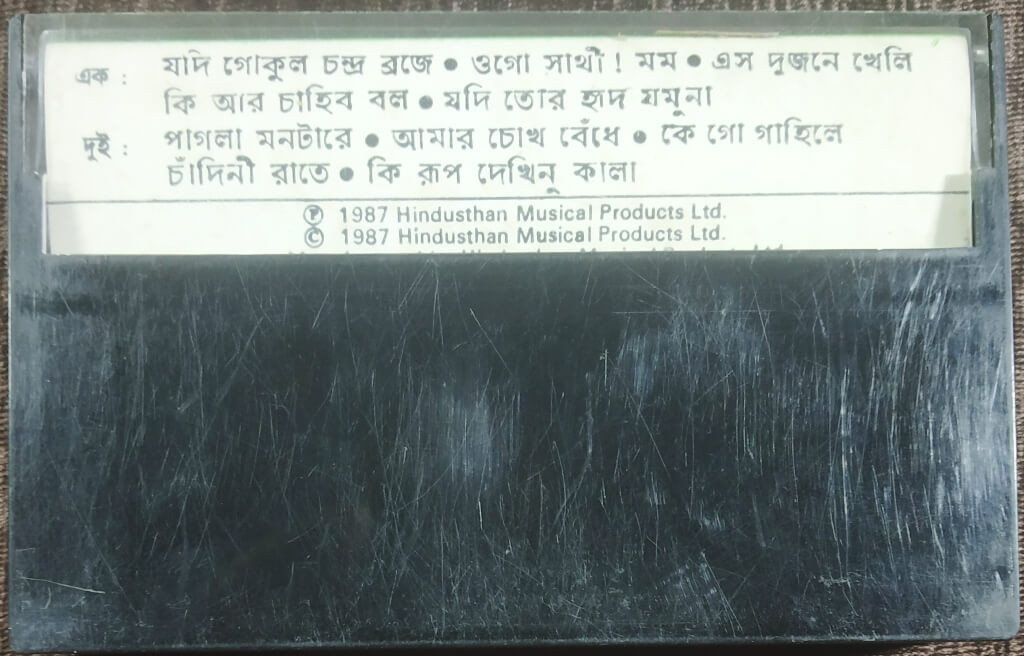 এক : যদি গোকুল চন্দ্র ব্রজে ● ওগো সাথী ! মম ● এস দুজনে খেলি
কি আর চাহিব বল ● যদি তোর হৃদ যমুনা
দুই : পাগলা মনটারে ● আমার চোখ বেঁধে ● কে গো গাহিলে
চাঁদিনী রাতে ● কি রূপ দেখিনু কালা
Ⓟ 1987 Hindusthan Musical Products Ltd.
© 1987 Hindusthan Musical Products Ltd.